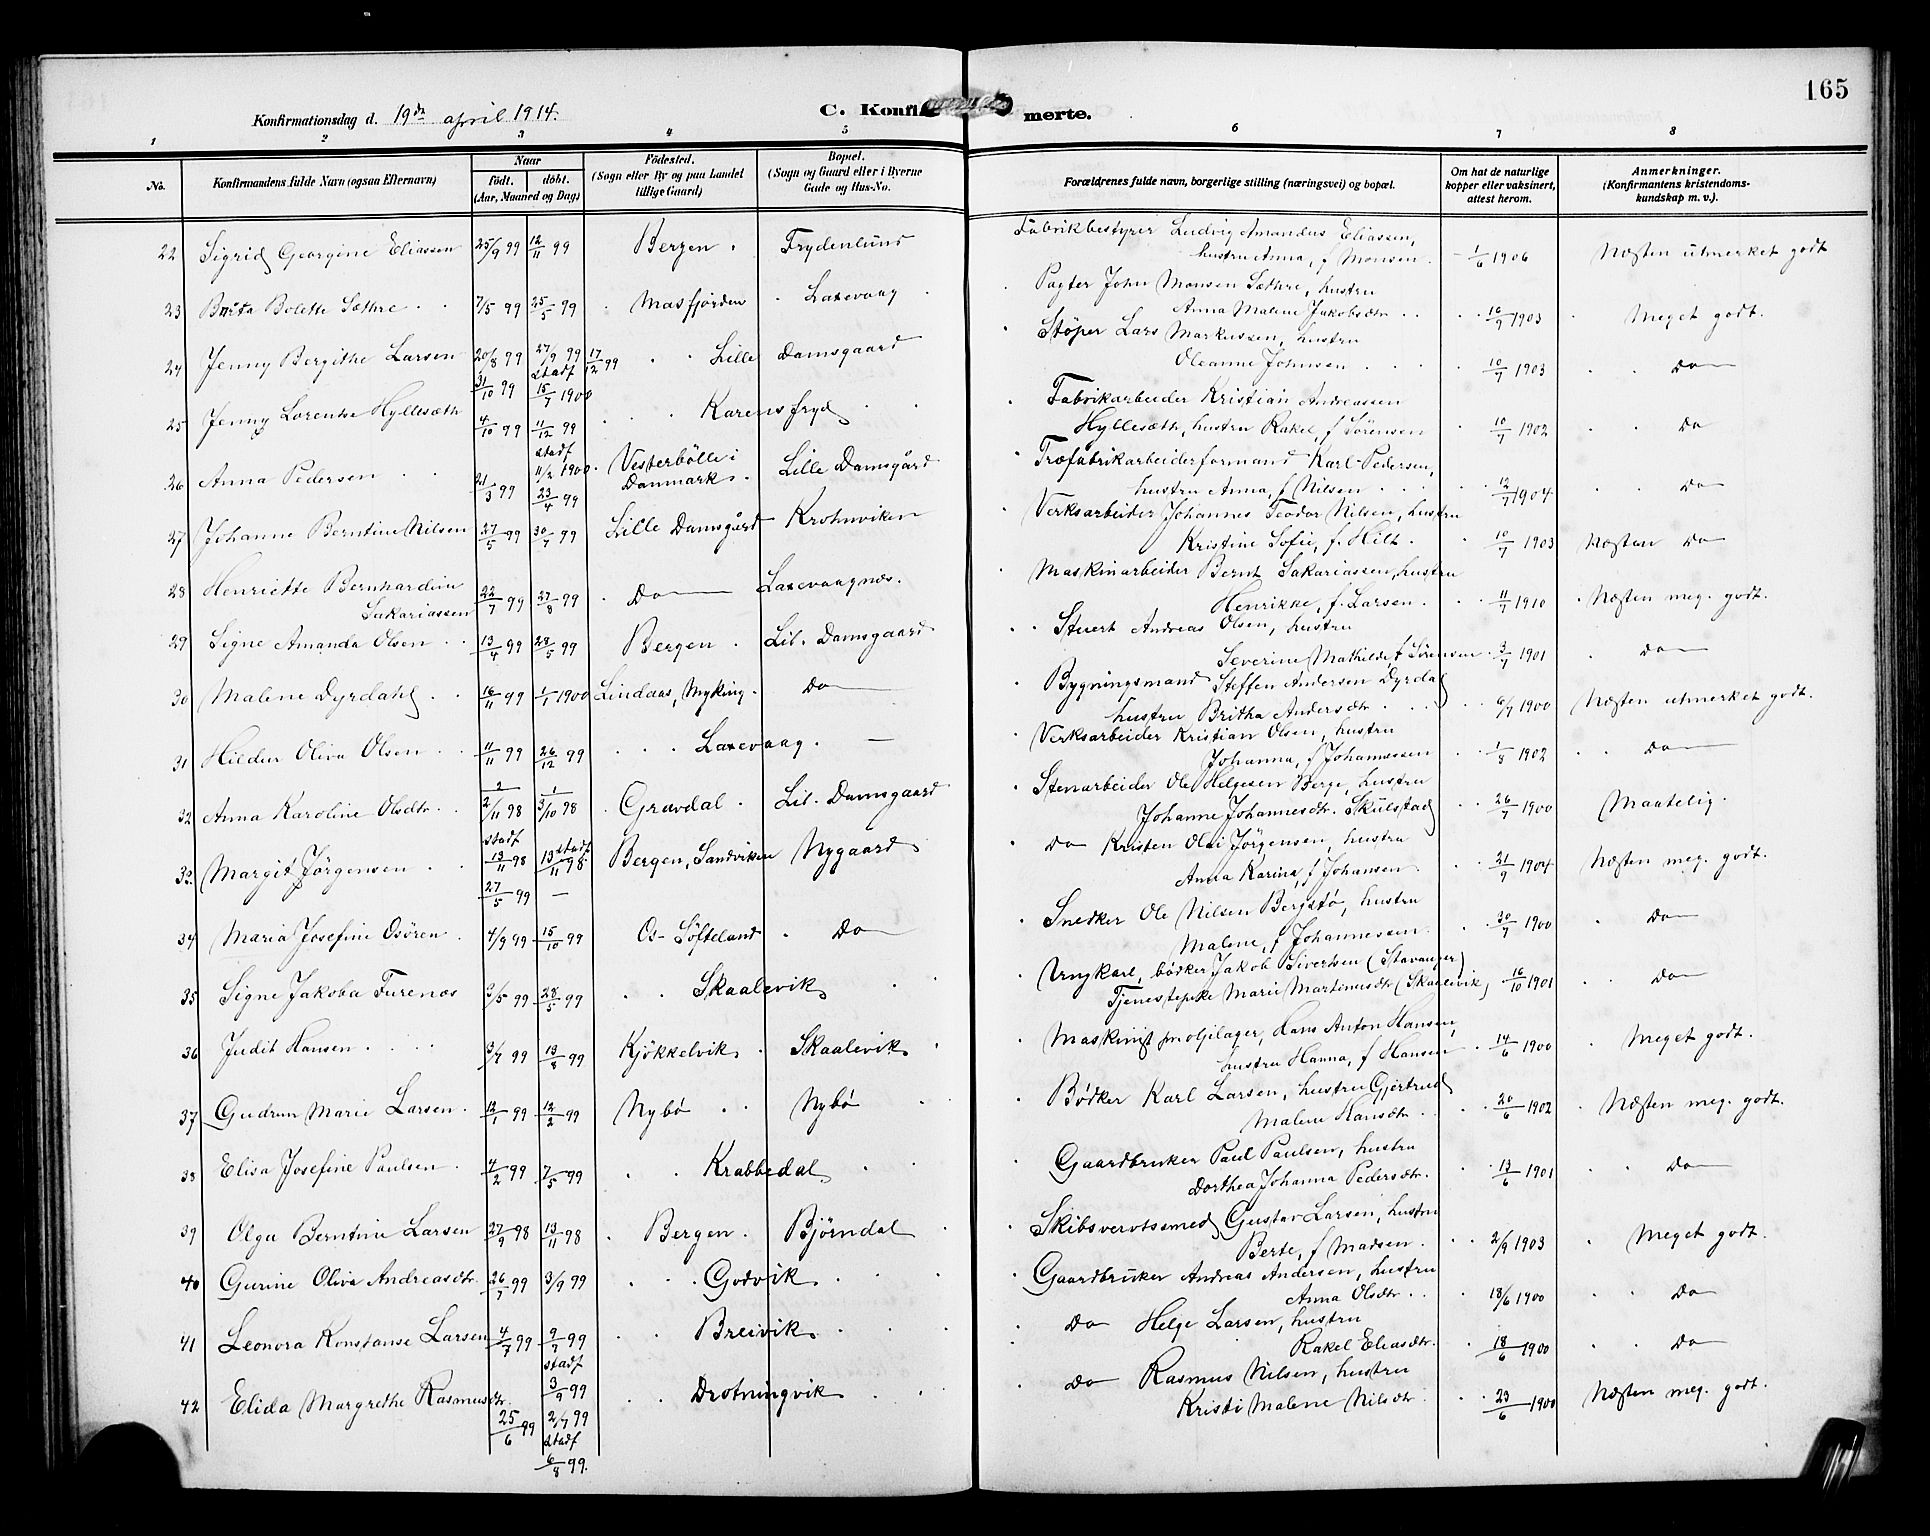 165
Konfirmationsdag d. 19de april 1914. C. Konfi merte.
1 2 3 4 5 6 7 8
No. Konfirmandens fulde Navn (ogsaa Efternavn) Naar født. døbt. (Aar, Maaned og Dag) Fødested. (Sogn eller By og paa Landet tillige Gaard) Bopæl. (Sogn og Gaard eller i Byerne Gade og Hus-No. Forældrenes fulde navn, borgerlige stilling (næringsvei) og bopæl. Om hat de naturlige kopper eller vaksinert, attest herom. Anmerkninger. (Konfirmantens kristendoms-kundskap m. v.).
22 Sigrid Georgine Eliassen 25/9 99 12/11 99 Bergen. Frydenlund Fabrikbestyrer Ludvig Amandus Eliassen,
hustru Anna, f Monsen. 1/6 1906 Næsten utmerket godt
23 Bolette Sæthre 7/5 99 25/5 99 Masfjorden Laxevaag Pagter John Monsen Sæthre, hustru
Anna Malene Jakobsdtr 16/9 1903 Meget godt.
24 Jenny Bergithe Larsen 20/8 99 27/9 99 stadf 17/12 99 Lille Damsgaard Støper Lars Markussen, hustru
Oleanne Johnsen 10/7 1903 Do
25 Jenny Lorentse Hyllesæth 31/10 99 15/7 1900 Karensfryd Fabrikarbeider Kristian Andreassen
4/10 99 11/12 99 stadf 11/2 1900 Hyllesæth, hustru Rakel, f Sørensen 10/7 1902 Do
26 Anna Pedersen 21/3 99 23/4 99 Vesterbølle i Danmark. Lille Damsgård Træfabrikarbeiderformand Karl Pedersen,
hustru Anna, f Nilsen 12/7 1904 Do
27 Johanne Berntine Nilsen 27/5 99 30/7 99 Lille Damsgård Krohnviken Verksarbeider Johannes Teodor Nilsen, hustru
Kristine Sofie, f. Hilt. 10/7 1903 Næsten Do
28 Henriette Bernhardine
Sakariassen 22/7 99 27/8 99 Do Laxevaagnæs. Maskinarbeider Bernt Sakariassen, hustru
Henrikke, f. Larsen. 11/7 1910 Næsten meg. godt.
29 Signe Amanda Olsen 13/4 99 28/5 99 Bergen. Lil. Damsgaard Stuert Andreas Olsen, hustru
Severine Mathilde, f Sørensen 3/7 1901 Do
30 Malene Dyrdahl 16/11 99 1/1 1900 Lindaas, Myking. Do Bygningsmand Steffen Andersen Dyrdal
hustru Britha Andersdtr 6/7 1900 Næsten utmerket godt.
31 Hildur Oliva Olsen 11/11 99 26/12 99 Laxevaag. Verksarbeider Kristian Olsen, hustru
Johanna, f Johannessen 1/8 1902 Do
32 Anna Karoline Olsdtr 2/11 98 3/10 98 Gravdal. Lil. Damsgaard Stenarbeider Ole Helgesen Berge, hustru
stadf 13/11 98 stadf 13/11 98 Johanne Johannesdtr. Skulstad 26/7 1900 Maatelig.
33. Margit Jørgensen 27/5 99 — Bergen, Sandviken Nygaard Do Kristen Olai Jørgensen, hustru
Anna Karina, f Johansen 21/9 1904 Næsten meg. godt.
34 Maria Josefine Osøren 4/9 99 15/10 99 Os- Søfteland Do Snedker Ole Nilsen Bergstø, hustru
Malene, f Johannessen 30/7 1900 Do
35 Signe Jakoba Furenæs 3/5 99 28/5 99 Skaalevik Ungkarl, bødker Jakob Sivertsen (Stavanger)
Tjenestepike Marie Martinusdtr (Skaalevik) 16/10 1901 Do
36 Judit Hansen 3/7 99 13/8 99 Kjøkkelvik Skaalevik Maskinist Hans Anton Hansen,
hustru Hanna, f Hansen 14/6 1900 Meget godt.
37 Gudrun Marie Larsen 12/1 99 12/2 99 Nybø Nybø Bødker Karl Larsen, hustru Gjertrud
Malene Hansdtr 20/6 1902 Næsten meg. godt.
38 Elisa Josefine Paulsen 4/2 99 7/5 99 Krabbedal Gaardbruker Paul Paulsen, hustru
Dorthea Johanna Pedersdtr. 13/6 1901 Do
39 Olga Berntine Larsen 27/9 98 13/11 98 Bergen. Bjørndal Skibsverftssmed Gustav Larsen, hustru
Berte, f Madsen. 2/9 1903 Meget godt.
40 Gurine Oliva Andreasdtr. 26/7 99 3/9 99 Godvik Gaardbruker Andreas Andersen, hustru
Anna Olsdtr 18/6 1900 Do
41 Leonora Konstanse Larsen 4/7 99 9/7 99 stadf 3/9 99 Breivik Do Helge Larsen, hustru
Rakel Eliasdtr. 18/6 1900 Do
42 Elida Margrethe Rasmusdtr. 25/6 99 2/7 99 stadf 6/8 99. Drotningvik Do Rasmus Nilsen, hustru
Kristi Malene Nilsdtr 23/6 1900 Næsten meg. godt.